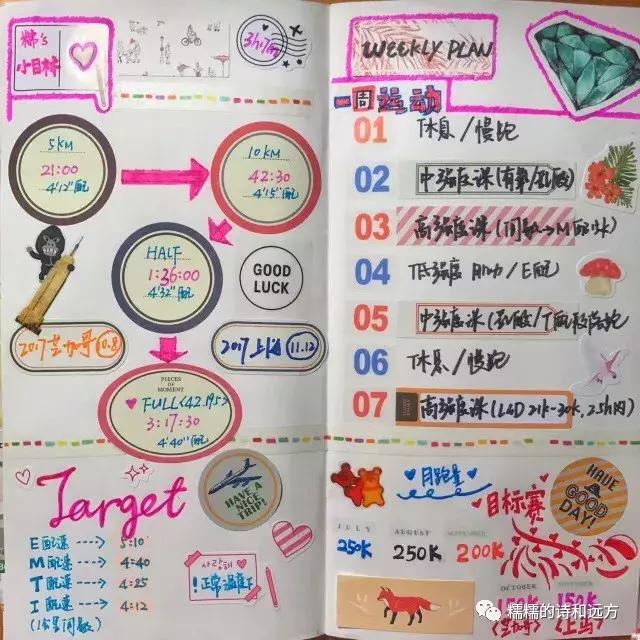 糯's
小目标
5KM
21:00
4'12"配
10KM
42:30
4'15"配
HALF
1:36:00
4'32"配
GOOD
LUCK
2017芝加哥 10.8
2017上海 11.12
PIECES
OF
MOMENT
FULL<42.195>
3:17:30
4'40"配
Target
HAVE A
NICE
TRIP!
E配速 ---> 5:10
M配速 ---> 4:40
T配速 ---> 4:25
I配速 ---> 4:12
사랑해
!正常温度下
WEEKLY PLAN
一周运动
01 休息/慢跑
02 中强度课(有氧/乳酸)
03 高强度课(间歇→M配
04 低强度 /E配
05 中强度课(乳酸/T配
06 休息/慢跑
07 高强度课(LSD 21k-30k, 2.5h内)
月跑量
目标赛
HAVE
A
GOOD
DAY!
JULY
250K
AUGUST
250K
SEPTEMBER
200K
OCTOBER
150K
(芝加哥)
NOVEMBER
150K
(上马)
糯糯的诗和远方